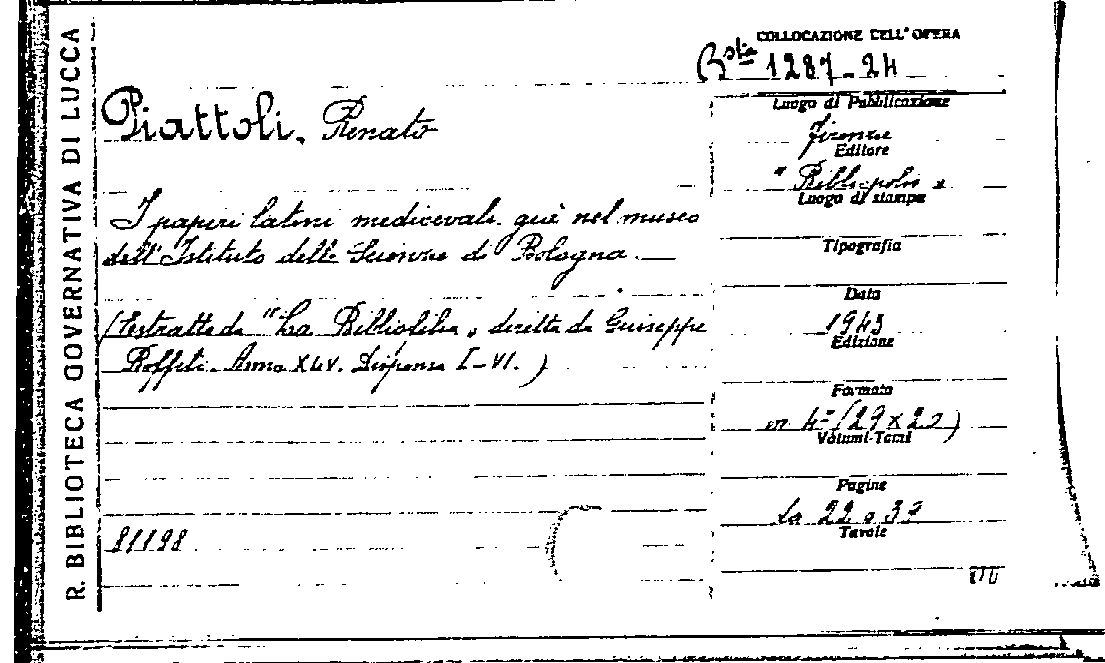 R. BIBLIOTECA GOVERNATIVA DI LUCCA
COLLOCAZIONE DELL' OPERA
Bsta 1287-24
Piattoli, Renato
I papiri latini medioevali già nel museo
dell'Istituto delle Scienze di Bologna.
(Estratto da "La Bibliofilia" diretta da Giuseppe
Boffiti. Anno XLV. Dispensa I-VI.)
81198
Luogo di Pubblicazione
Firenze
Editore
"Bibliopolis"
Luogo di stampa
Tipografia
Data
1943
Edizione
Formato
in 4º (29 x 20)
Volumi-Tomi
Pagine
da 22 a 32
Tavole